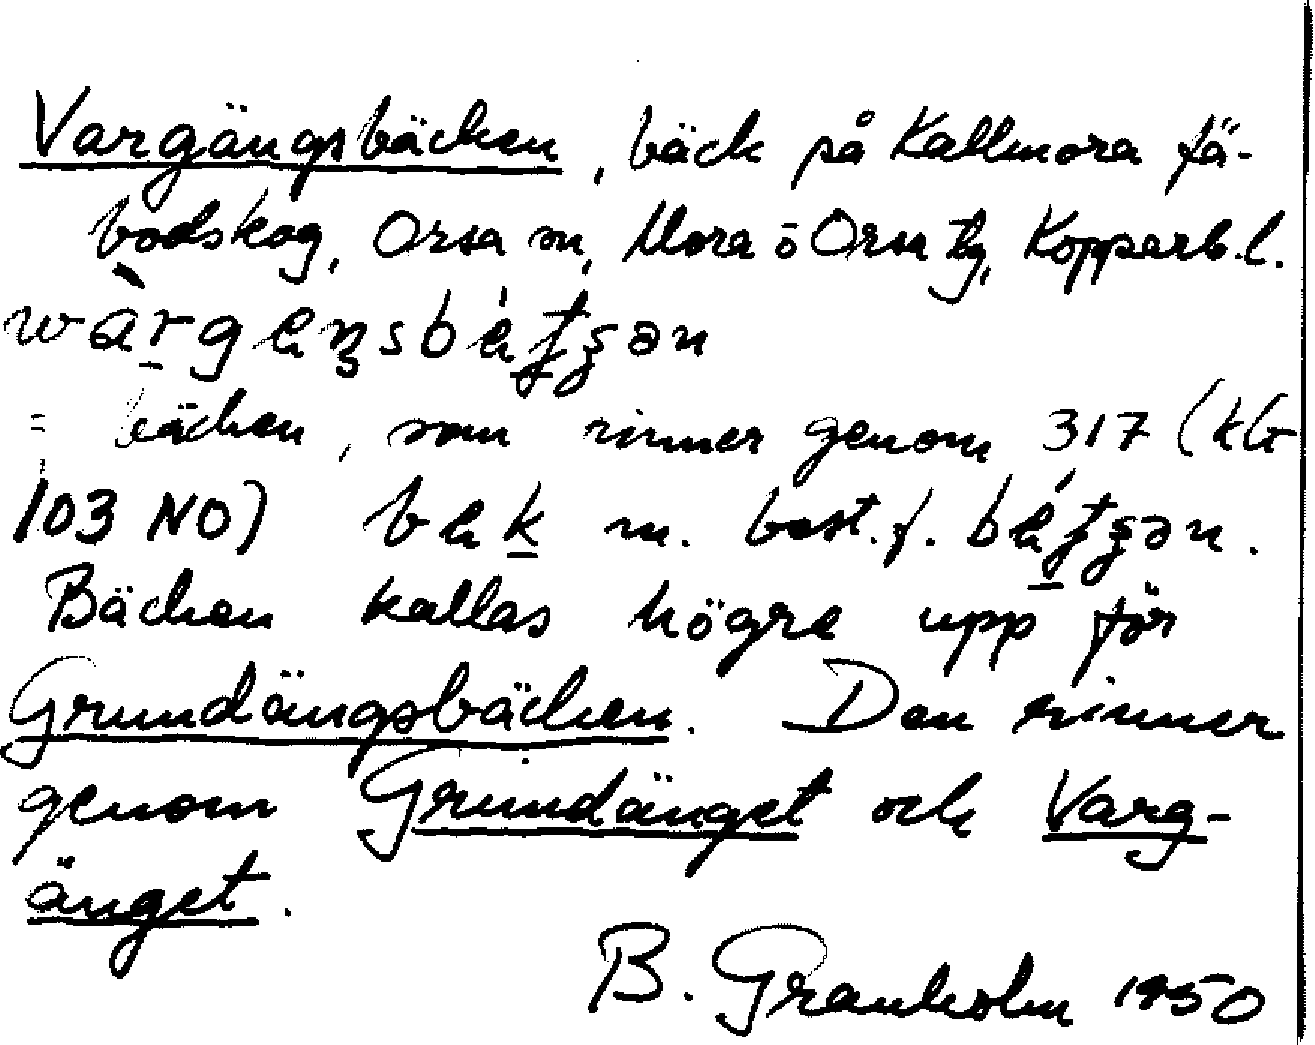 Vargängsbäcken, bäck på Kallmora fä-
bodskog, Orsa sn, Mora o Orsa tg, Kopparb.l.
= bäcken, som rinner genom 317 (kbl
103 NO) bäk m. best.f.
Bäcken kallas högre upp för
Grundängsbäcken. Den rinner
genom Grundänget och Varg-
änget.
B. Granholm 1950